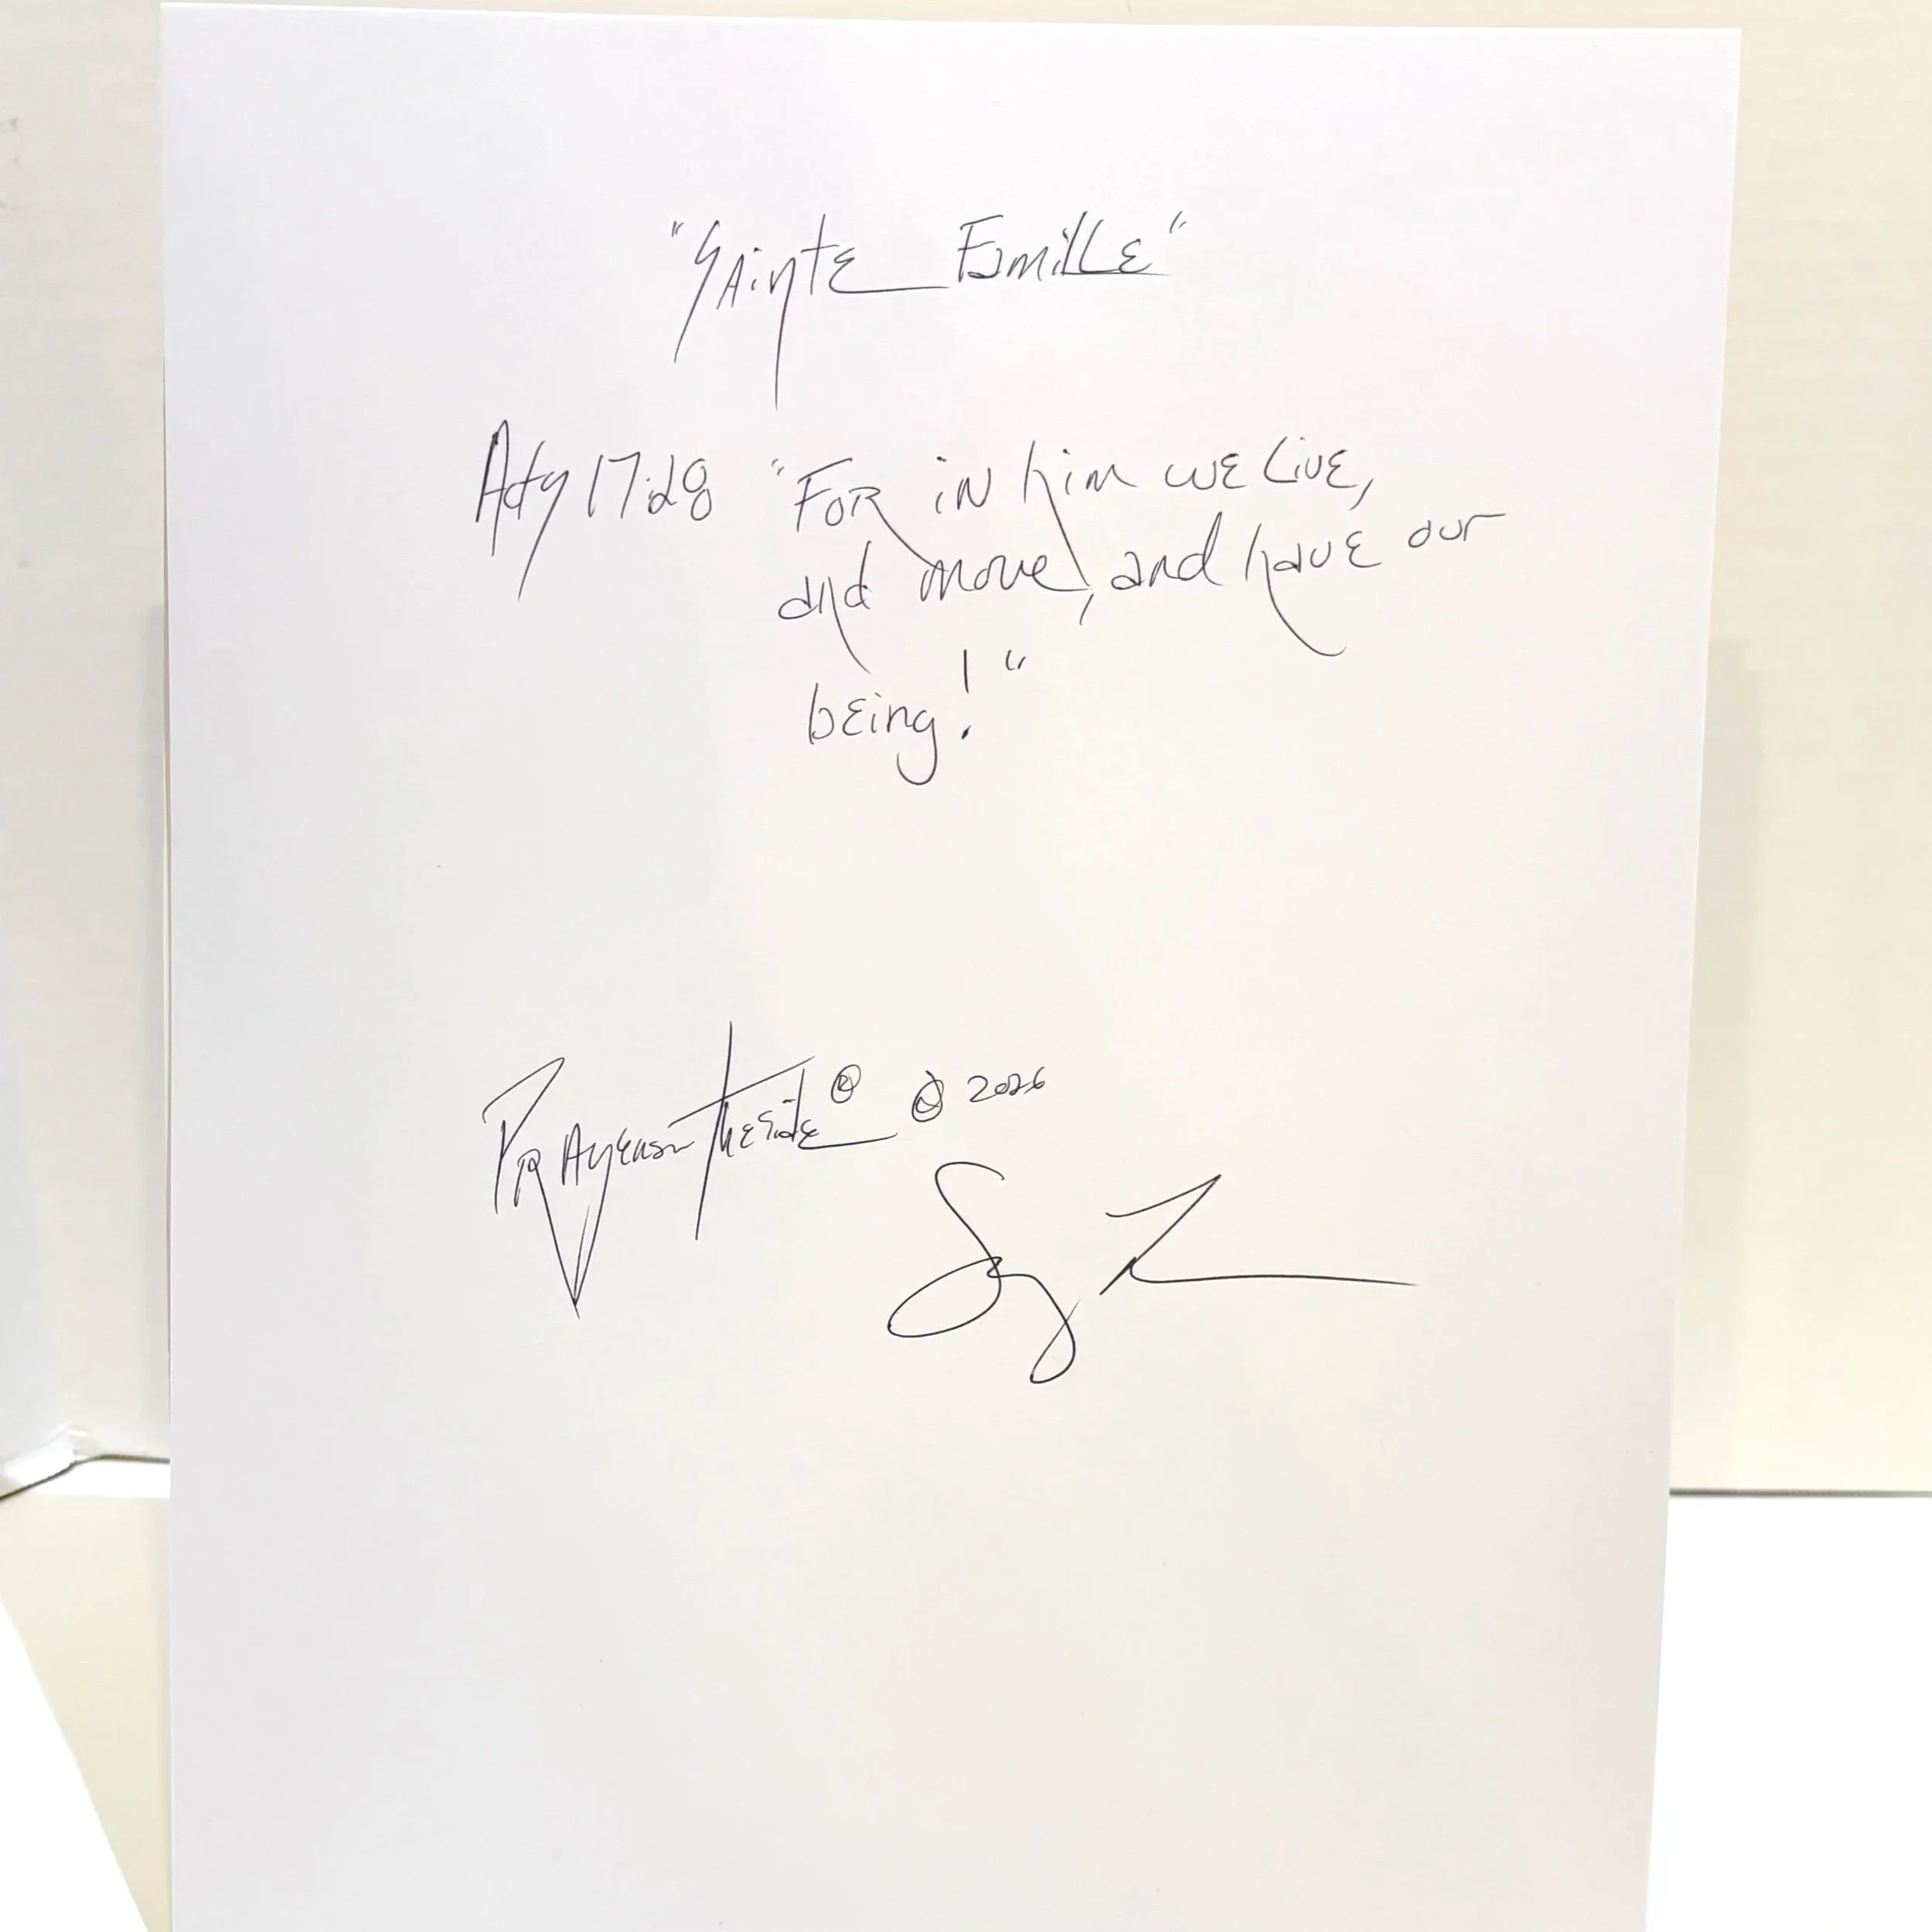 "Sainte Famille"
Acts 17:28 "For in him we live,
and move, and have our
being!"
Prayers on the Side® © 2026